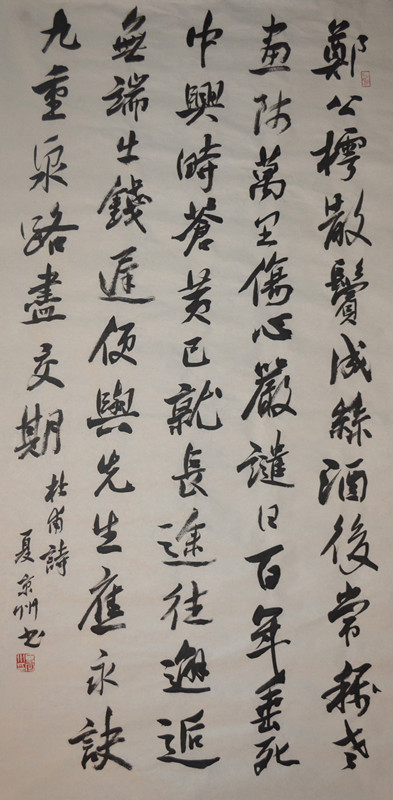 鄭公樗散鬢成絲酒後常稱老
畫師萬里傷心嚴譴日百年垂死
中興時蒼黄已就長途往邂逅
無端出錢遲便與先生應永訣
九重泉路盡交期
杜甫詩
夏京州书